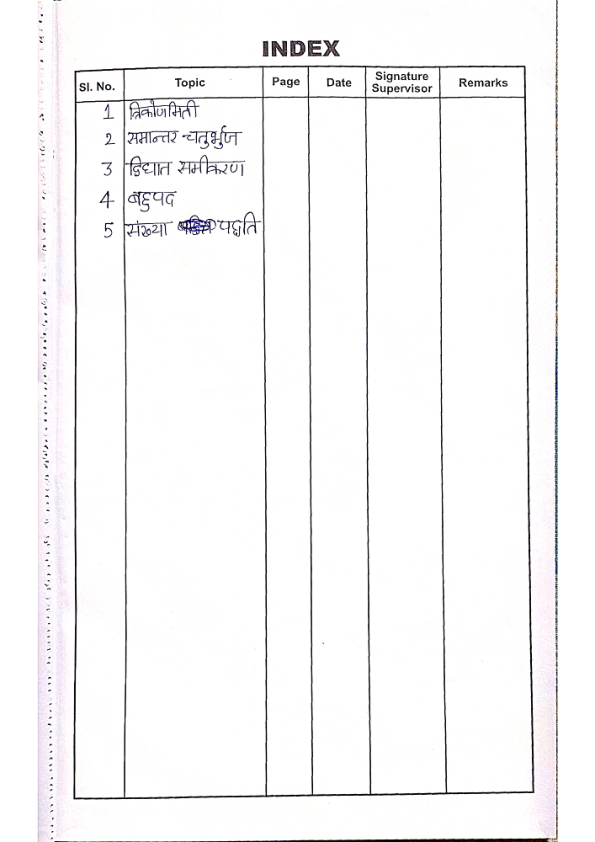 INDEX
Sl. No. Topic Page Date Signature Supervisor Remarks
1 त्रिकोणमिती
2 समान्तर चतुर्भुज
3 द्विघात समीकरण
4 बहुपद
5 संख्या पद्धति